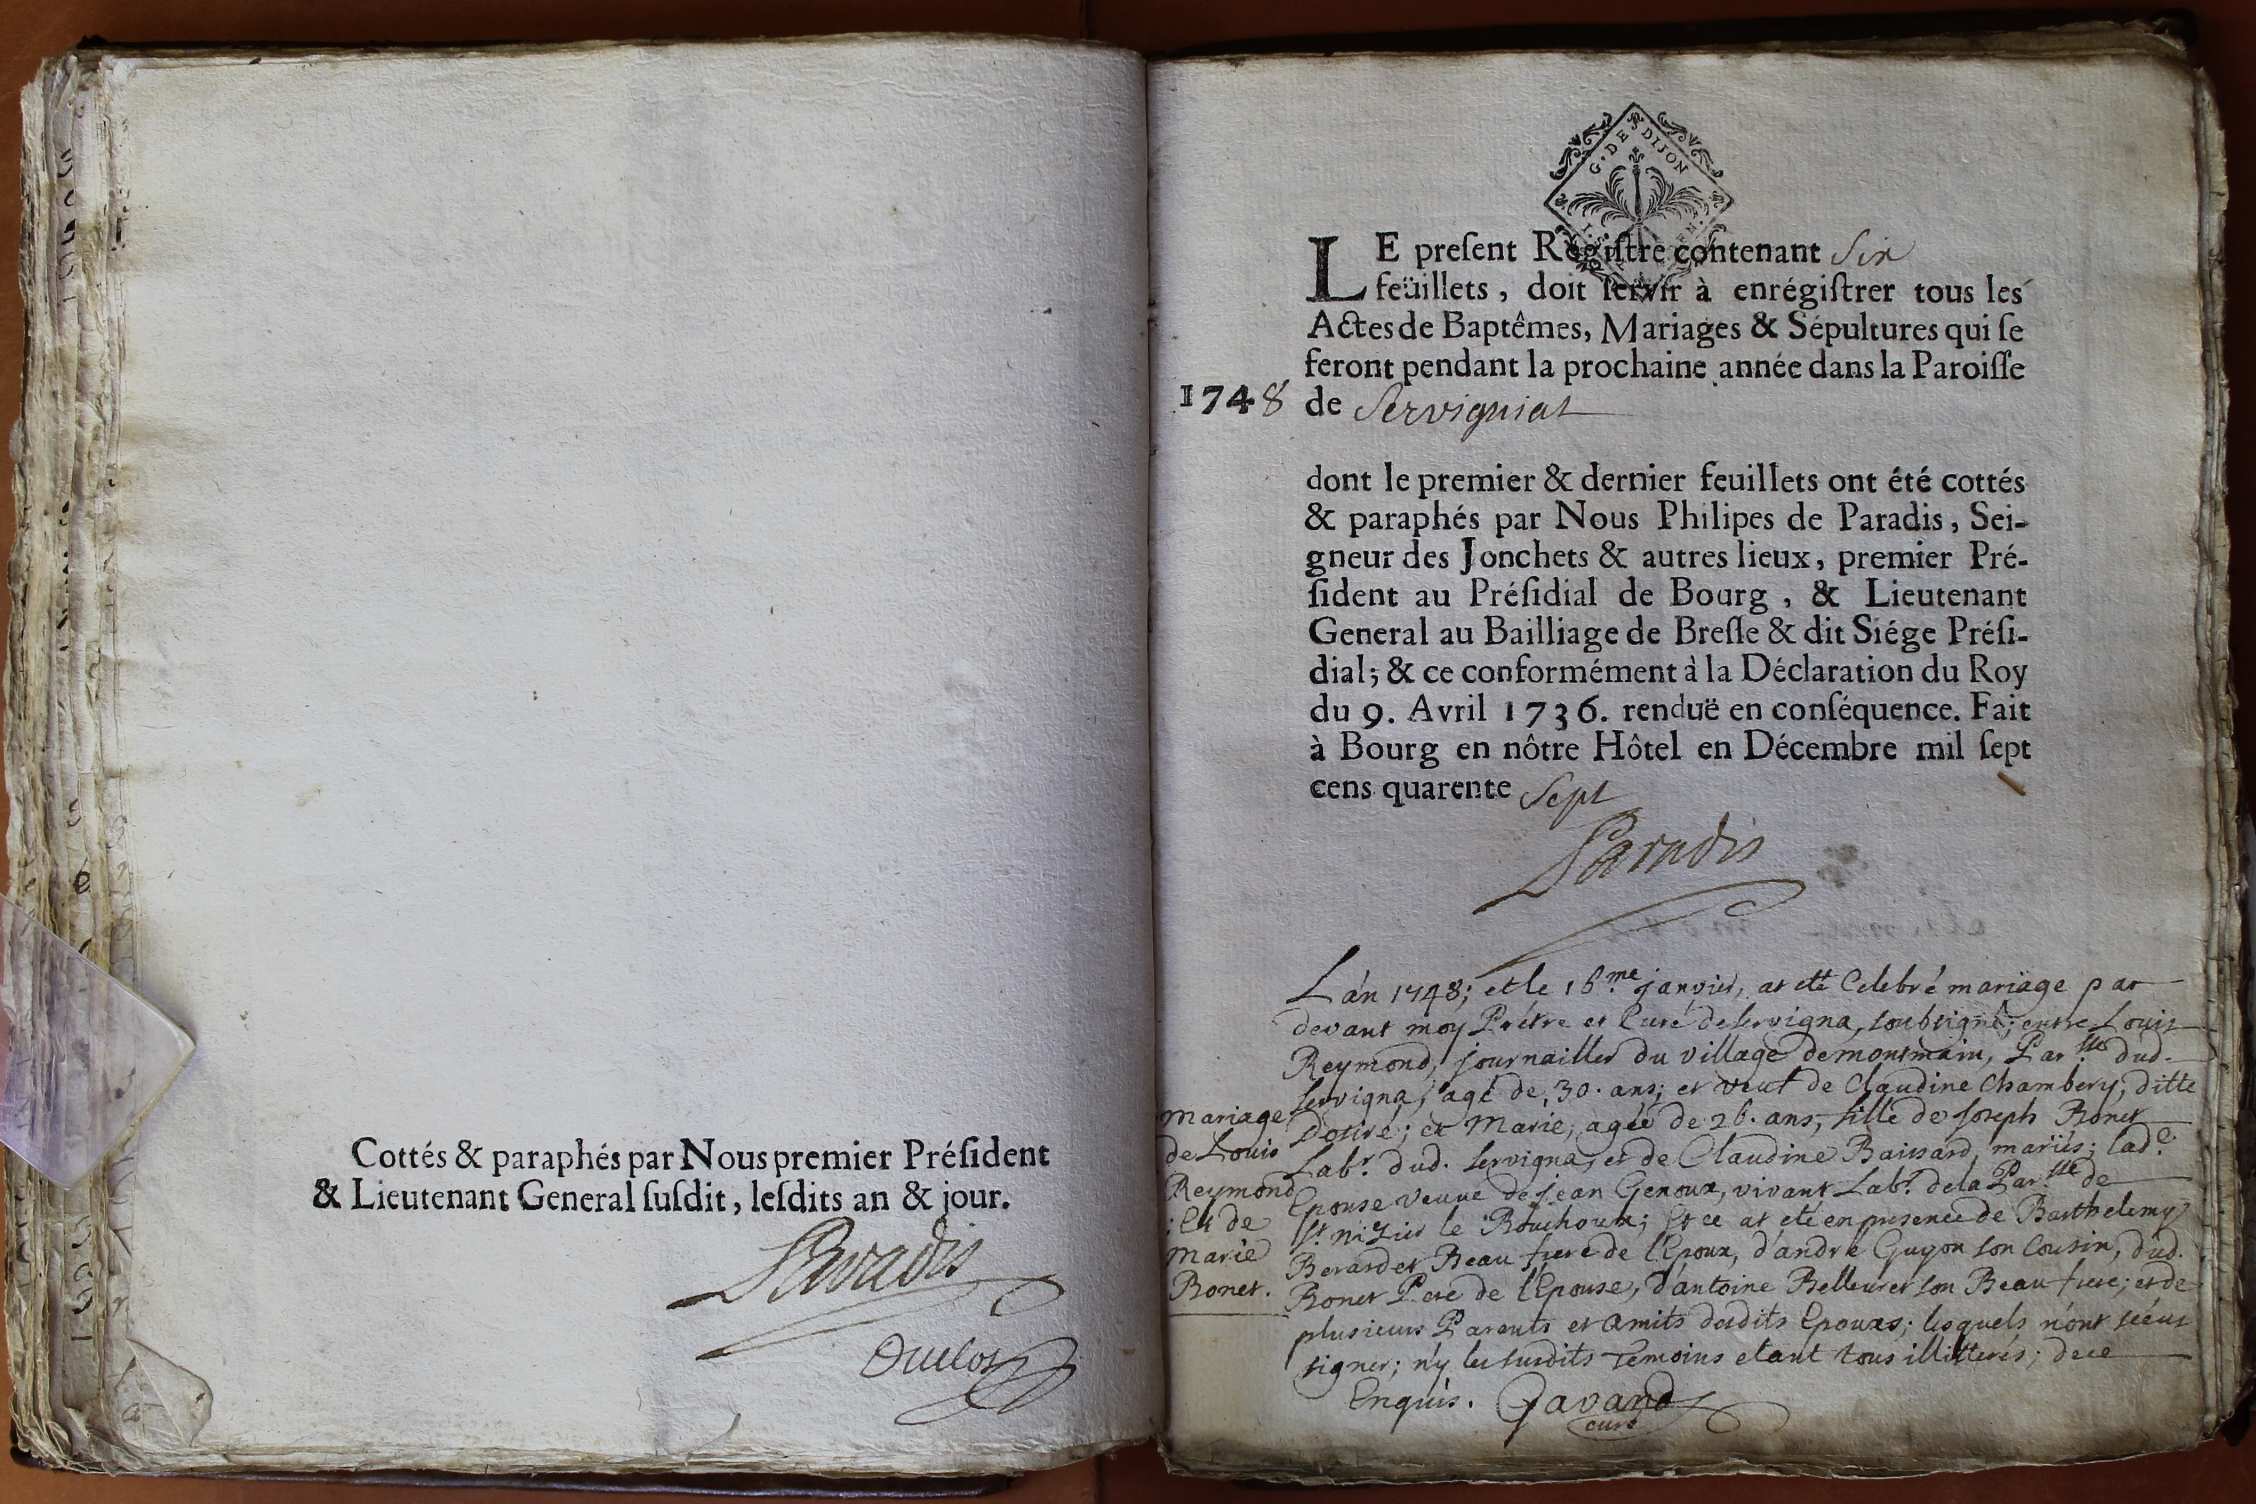 Cottés & paraphés par Nous premier Préſident
& Lieutenant General ſuſdit, leſdits an & jour.
Paradis
Duclos
G. DE DIJON
LE preſent Régiſtre contenant Six
feüillets, doit ſervir à enrégiſtrer tous les
Actes de Baptêmes, Mariages & Sépultures qui ſe
feront pendant la prochaine année dans la Paroiſſe
1748 de Servigniat
dont le premier & dernier feuillets ont été cottés
& paraphés par Nous Philipes de Paradis, Sei-
gneur des Jonchets & autres lieux, premier Pré-
ſident au Préſidial de Bourg, & Lieutenant
General au Bailliage de Breſſe & dit Siége Préſi-
dial; & ce conformément à la Déclaration du Roy
du 9. Avril 1736. renduë en conſéquence. Fait
à Bourg en nôtre Hôtel en Décembre mil ſept
cens quarente Sept
Paradis
L'án 1748; et le 16.me janvier, at eté Celebré mariäge par
devant moy Prétre et Curé de servigna, soubsigné; entre Louis
Reymond, journaillier du village de montmain, Par.sse dud.
servigna, agé de 30. ans; et veuf de Claudine Chambery, ditte
; et Marie, agée de 26. ans, fille de Joseph Bonet
Lab.r dud. servigna, et de Claudine Baissard, mariés; lad.e
Epouse veuve de jean Genoux, vivant Lab.r de la Par.sse de
s.t niZier le Bouchoux; Et ce at eté en presence de Barthelemy
Berardet Beau frere de l'Epoux, d'andré Guyon son Cousin, dud.
Bonet Pere de l'Epouse, d'antoine Belleuret son Beau frere; et de
plusieurs Parents et amits desdits Epouxs; lesquels n'ont sçéut
signer; n'y les susdits Temoins etant tous illitterés; de ce
Enquis. Gavand
curé
Mariage
de Louis
Reymond
; Et de
Marie
Bonet.